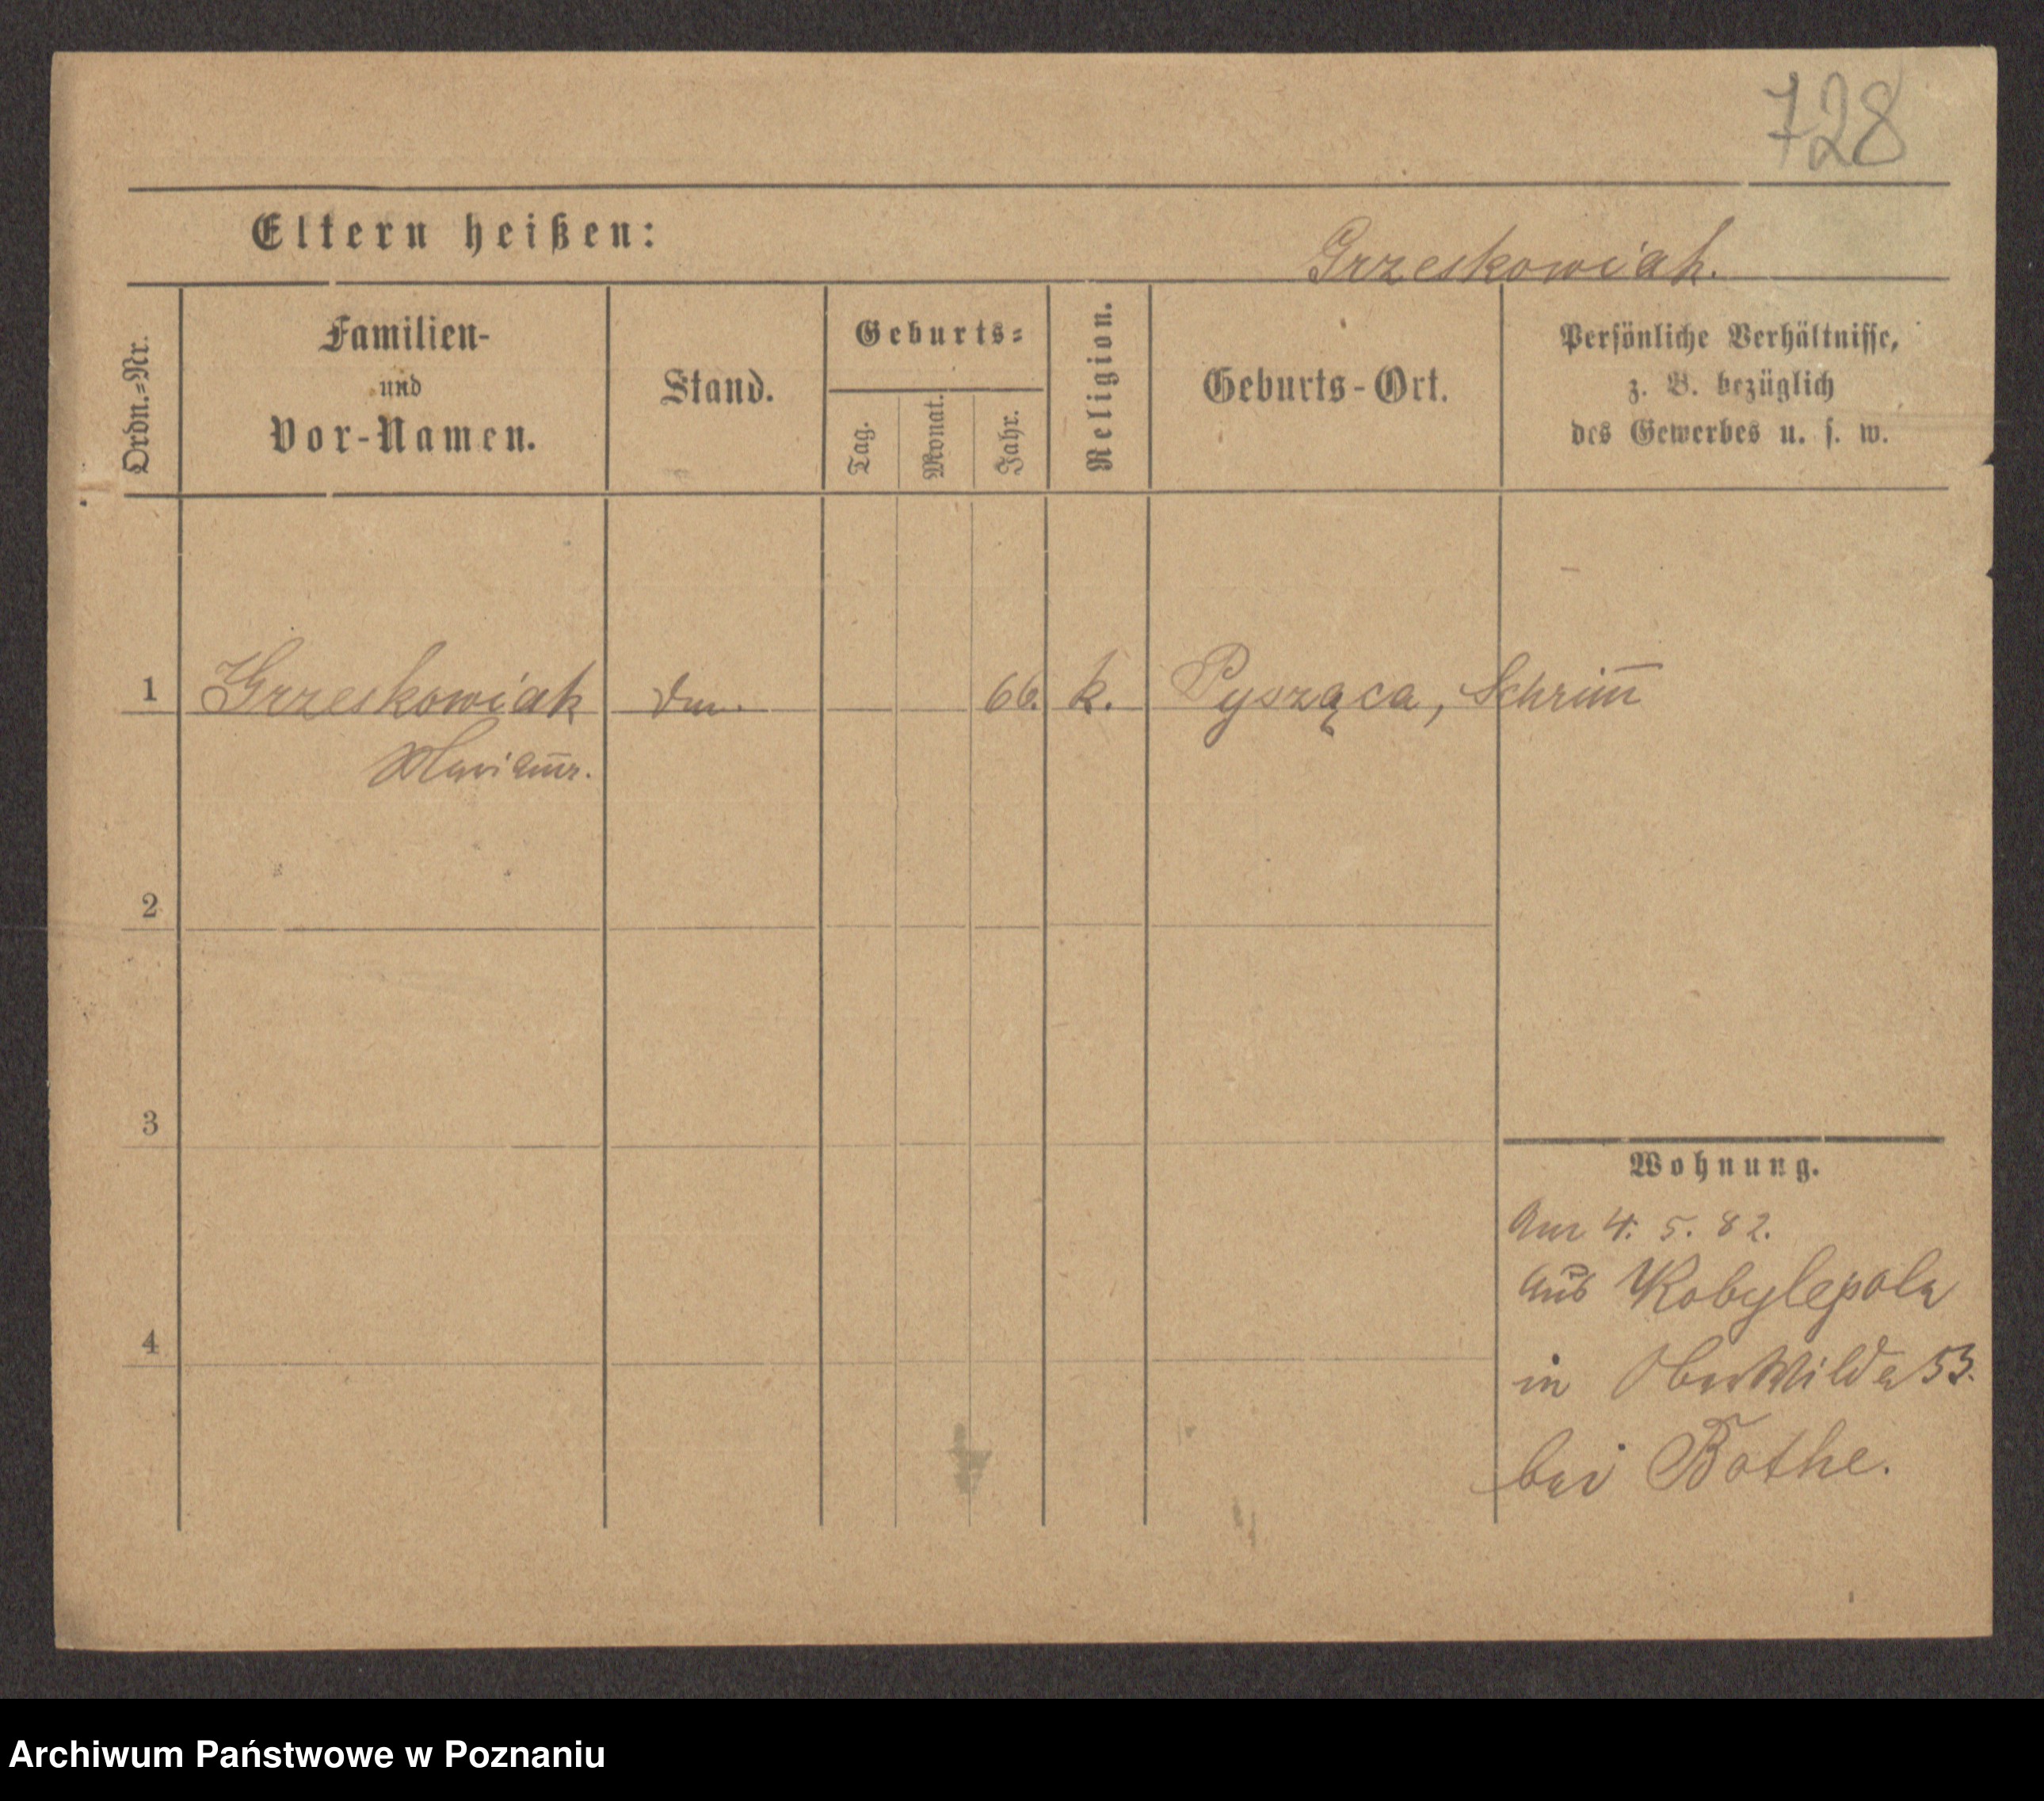 728
Eltern heißen:
Grzeskowiak.
Ordn.=Nr.
Familien-
und
Vor-Namen.
Stand.
Geburts=
Tag.
Monat.
Jahr.
Religion.
Geburts-Ort.
Persönliche Verhältnisse,
z. B. bezüglich
des Gewerbes u. s. w.
1 Grzeskowiak 66. k. Pysząca, Schrim̅
2
3
4
Wohnung.
Am 4. 5. 82.
aus Kobylepole
in Ober Wilda 53.
bei Bothe.
Archiwum Państwowe w Poznaniu